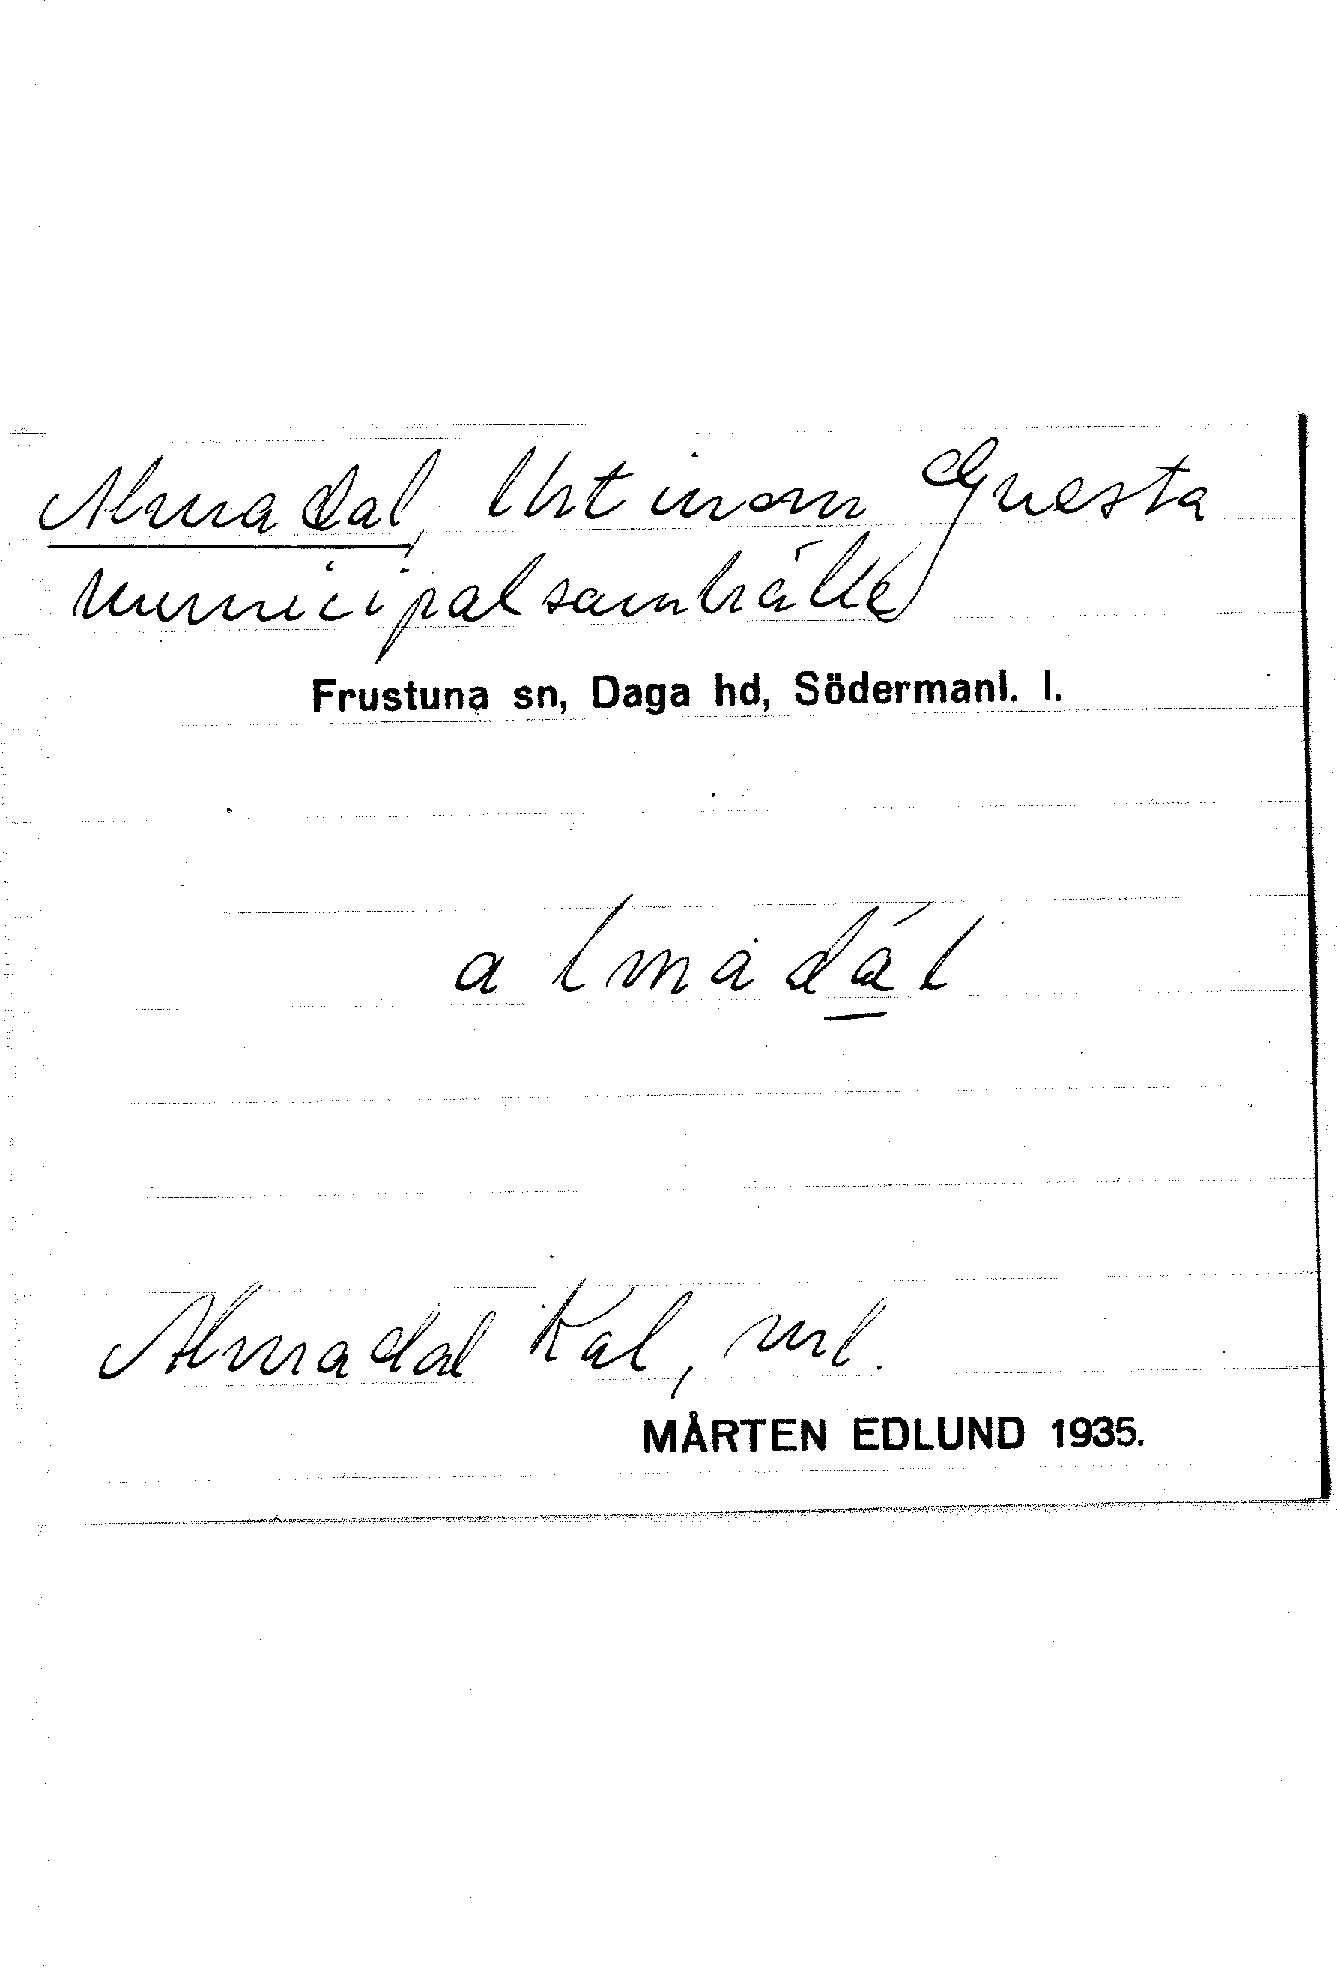 Almadal, lht inom Gnesta
municipalsamhälle
Frustuna sn, Daga hd, Södermanl. l.
almadál
Almadal Kal, ml.
MÅRTEN EDLUND 1935.